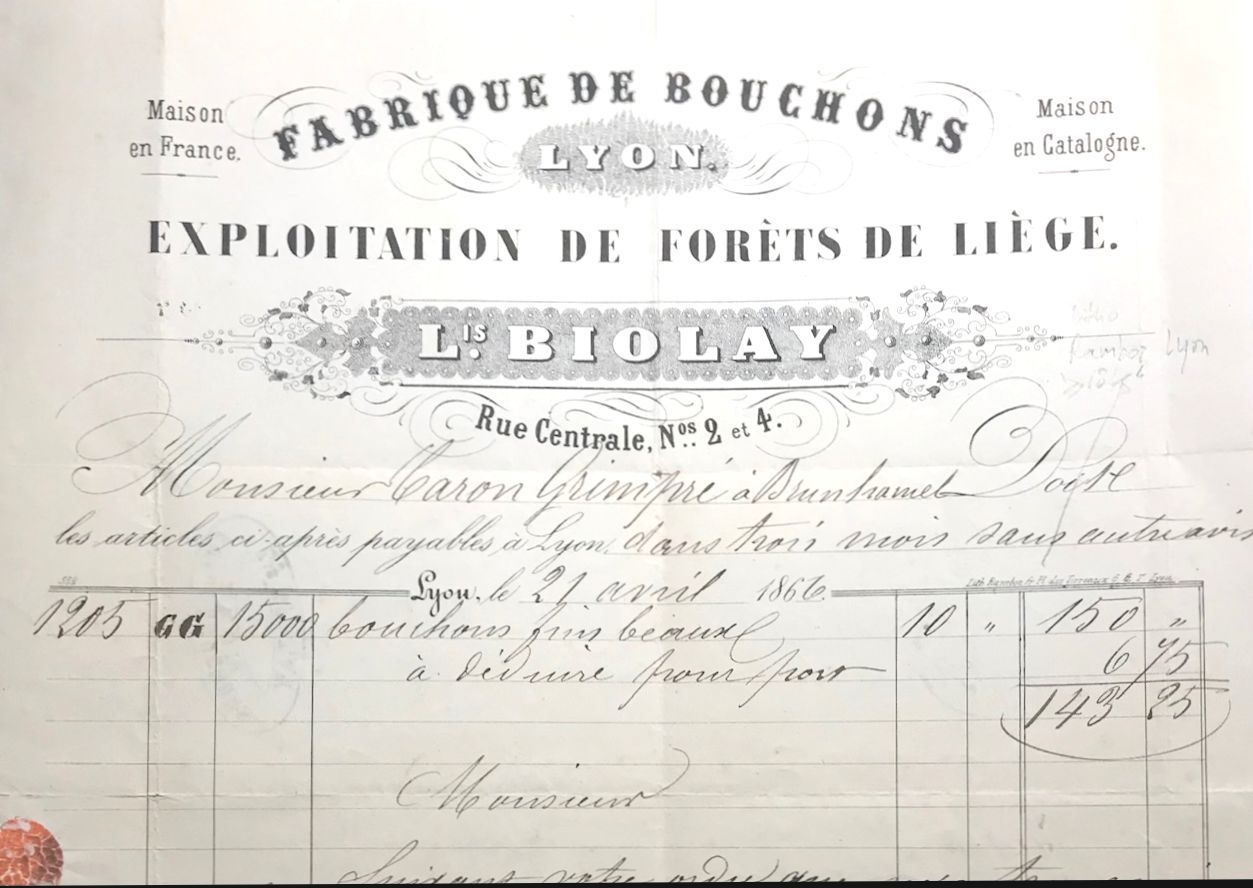 Maison
en France.
FABRIQUE DE BOUCHONS
LYON.
Maison
en Catalogne.
EXPLOITATION DE FORÈTS DE LIÈGE.
L.IS BIOLAY
Lyon
Rue Centrale, Nos. 2 et 4.
Monsieur Caron Grimpré à Brunhamel Doit
les articles ci-après payables à Lyon, dans trois mois sans autre avis
Lyon, le 21 avril 1866.
1205 GG 15000 bouchons fins beaux 10 " 150 "
à déduire pour port 6 75
143 25
Monsieur
Suivant votre ordre que